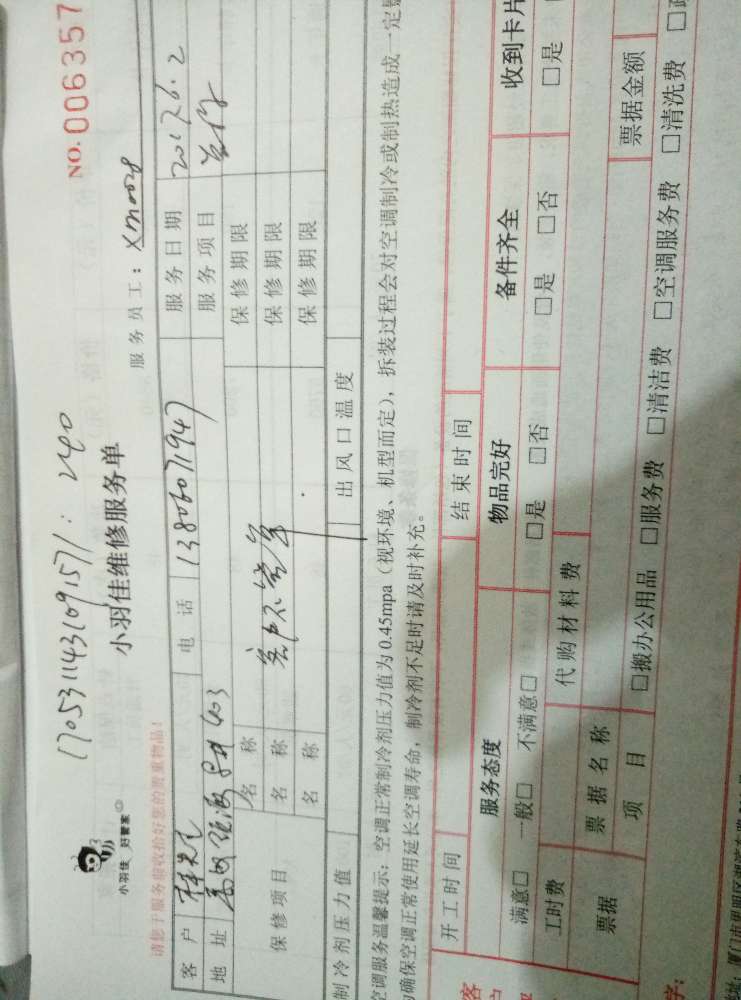 NO.006357
1705311431091571:240
小羽佳 好管家
小羽佳维修服务单
服务员工:Xm0028
请您于服务前收拾好您的贵重物品!
客户 林先生 电话 13806071947 服务日期 2017.6.2
地址 403 服务项目
保修项目 名称 保修期限
名称 客户不 保修期限
名称 保修期限
制冷剂压力值 出风口温度
空调服务温馨提示:空调正常制冷剂压力值为0.45mpa(视环境、机型而定),拆装过程会对空调制冷或制热造成一定
确保空调正常使用延长空调寿命,制冷剂不足时请及时补充。
开工时间 结束时间
服务态度 物品完好 备件齐全 收到卡片
满意□ 一般□ 不满意□ □是 □否 □是 □否 □是
工时费 代购材料费
票据 票据名称 票据金额
项目 □搬办公用品 □服务费 □清洁费 □空调服务费 □清洗费